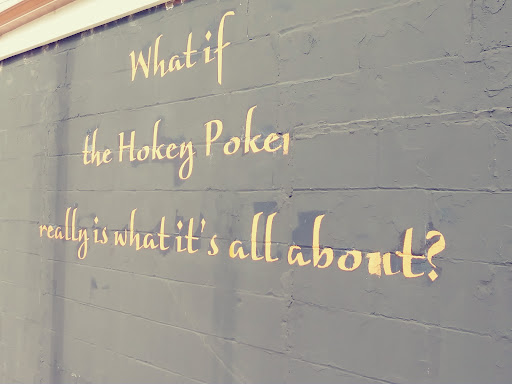 What if
the Hokey Poker
really is what it's all about?